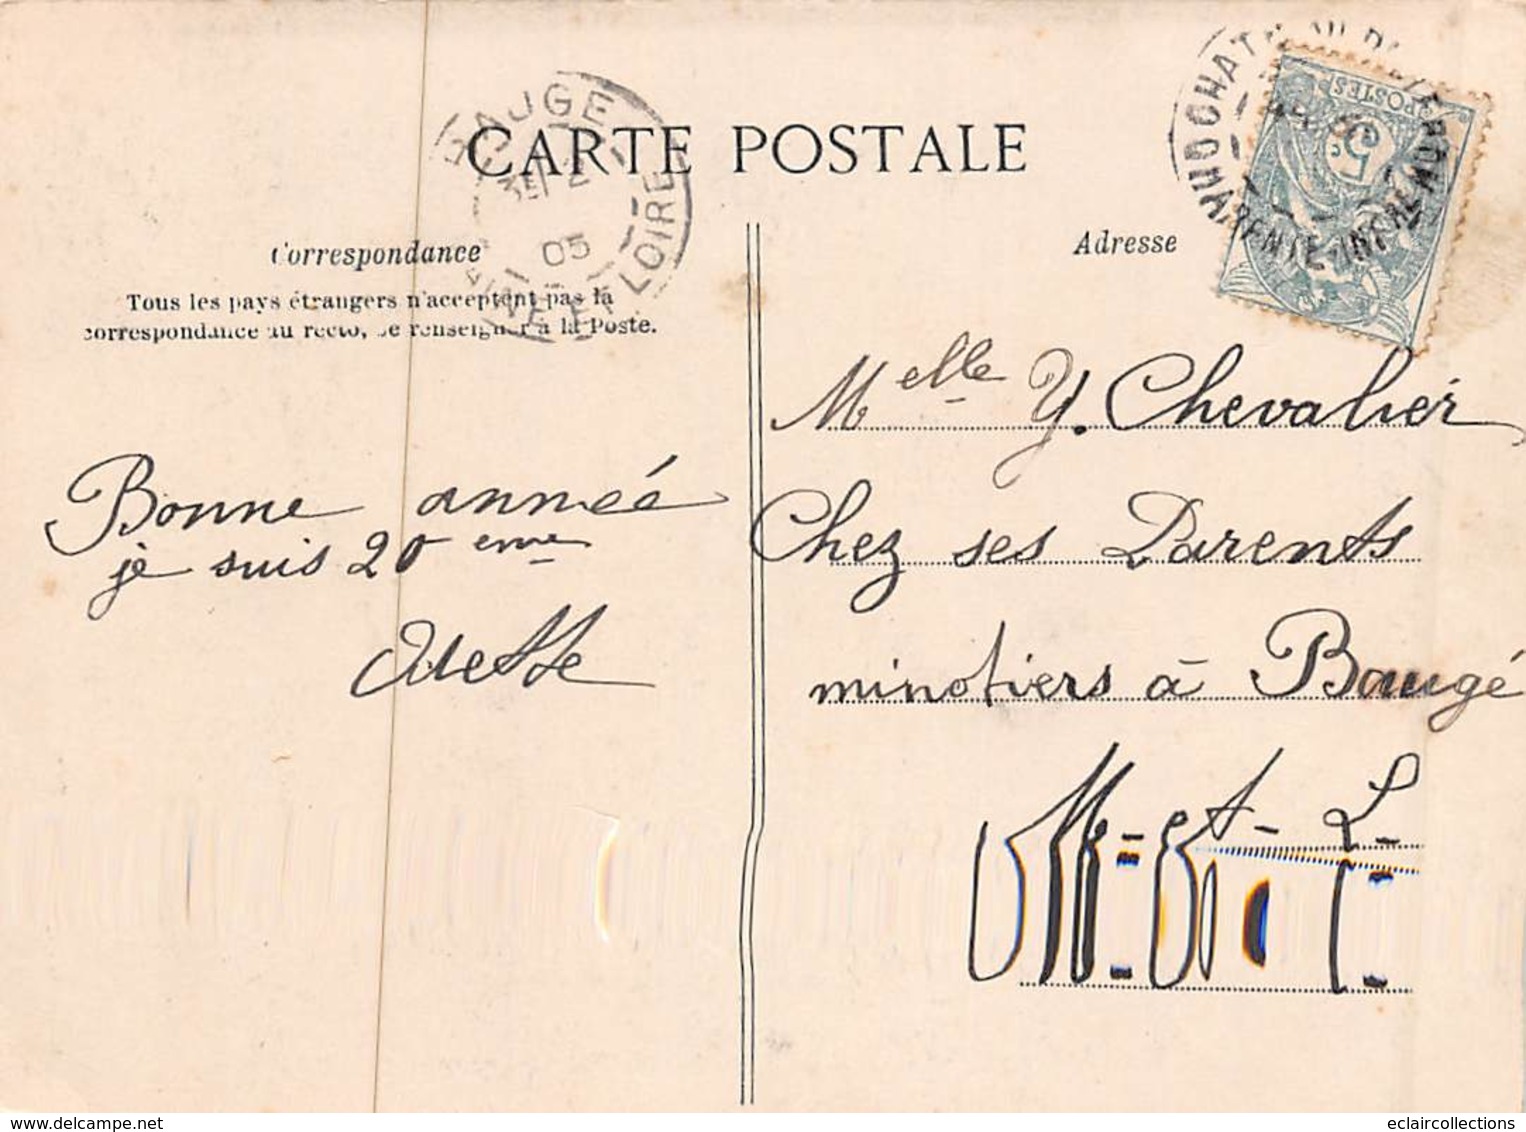 CARTE POSTALE
BAUGE
05
LOIRE
POSTES
5
Correspondance
Tous les pays étrangers n'acceptent pas la
correspondance au recto, se renseigner à la Poste.
Bonne année
je suis 20eme
Odette
Adresse
Melle Y. Chevalier
Chez ses Parents
minotiers à Baugé
M-et-L-
eclaircollections